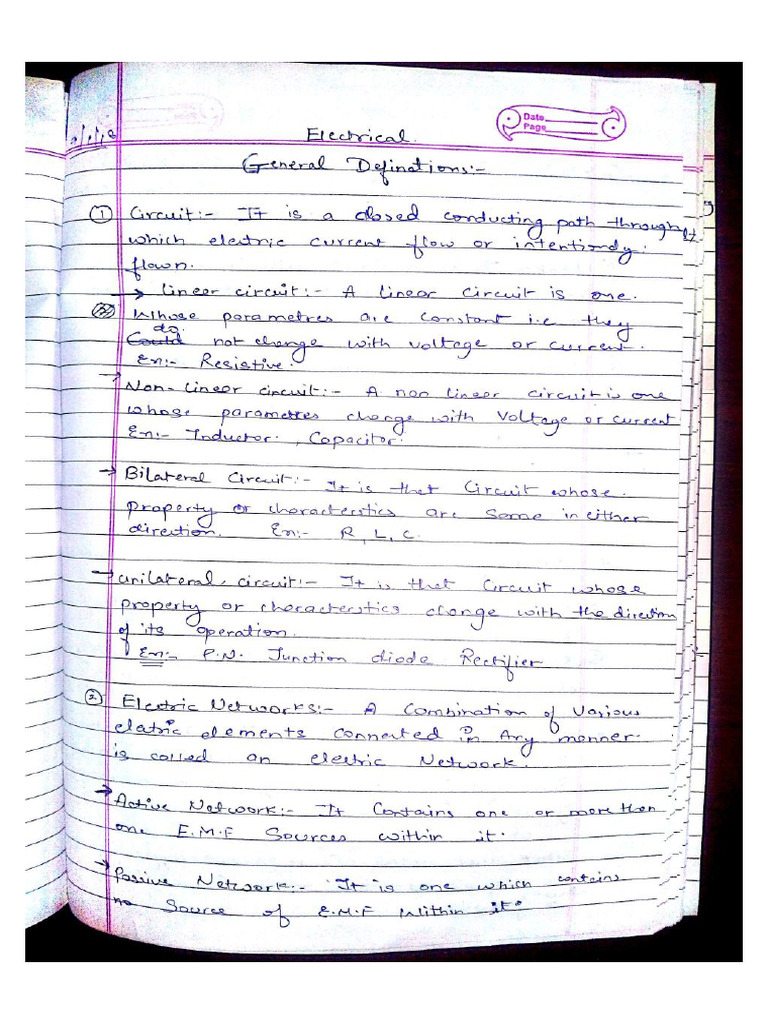 Electrical.
Date
Page
General Definations:-
① Circuit:- It is a closed conducting path through
which electric current flow or intentionally
flown.
→ Linear circuit:- A linear circuit is one.
whose parametres are constant i.e they
do.
Could not change with voltage or current.
En:- Resistive.
→ Non-linear circuit:- A non linear circuit is one
whose parametres change with voltage or current
En:- Inductor, Capacitor.
→ Bilateral Circuit:- It is that Circuit whose.
property or characterstics are same in either
direction. En:- R, L, C.
→ unilateral circuit:- It is that circuit whose
property or characterstics change with the direction
of its operation.
En:- P.N. Junction diode Rectifier
② Electric Networks:- A Combination of various
elatric elements connected in Any manner.
is called an electric Network.
→ Active Network:- It Contains one or more than
one E.M.F Sources within it.
→ Passive Network:- It is one which contains
no Source of E.M.F within it.